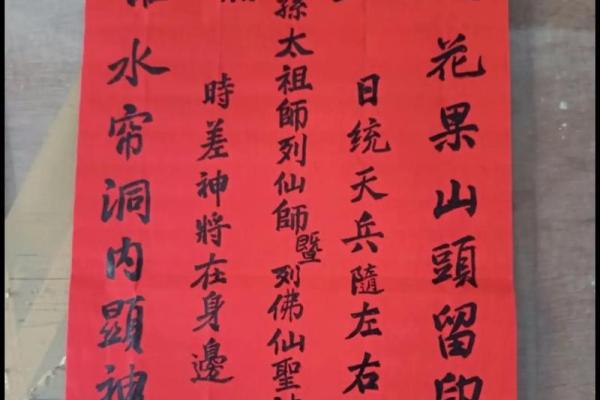 花果山頭留印
日统天兵隨左右
孫太祖師列仙師暨列佛仙聖
時差神將在身邊
水帘洞内顯神